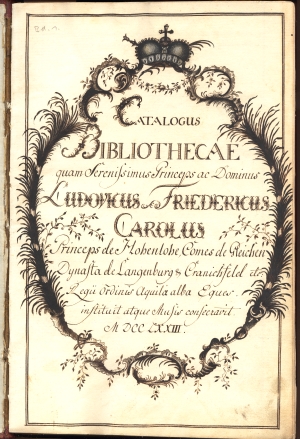 CATALOGUS
BIBLIOTHECAE
quam Serenissimus Princeps ac Dominus
LUDOVICUS FRIEDERICUS
CAROLUS
Princeps de Hohenlohe Comes de Gleichen
Dynasta de Langenburg & Cranichfeld etc
Regii Ordinis Aquilae albae Eques
instituit atque Musis consecravit
M DCC LXXIII.